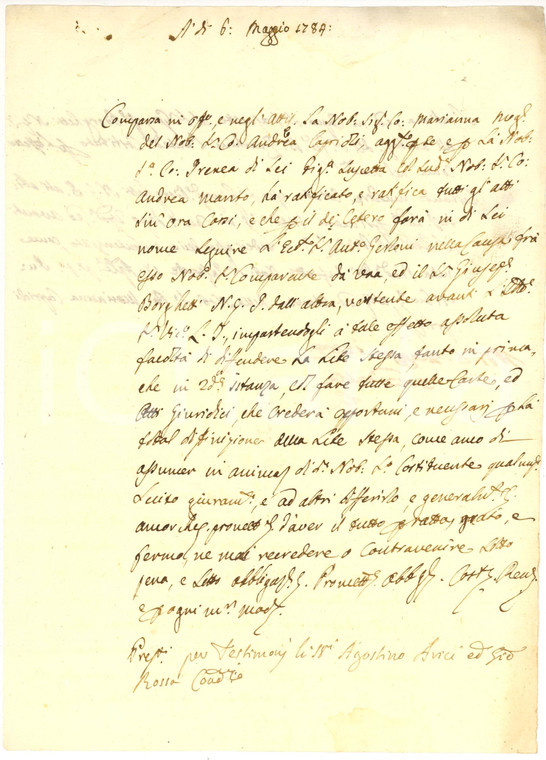 A dì 6: Maggio 1784:
Comparsa in off.o, e negli Atti. La Nob. Sig.a Co: Marianna Mog.
del Nob. S.r Co. Andrea Caprioli, e La Nob.
S.a Co: Irenea di Lei Fig.a Nob. S. Co:
Andrea marito, hà ratificato, e ratifica tutti gl'atti
sin' ora Corsi, e che p il di Cetero farà in di Lei
nome seguire L'Ecc.te S.r Ant.o Gerloni nella Causa frà
esso Nob. S.r Comparente da una, ed il S.r Giusep.
Borghetti N. G. P. dall'altra, vertente avanti L'
S.r Vic.o L. T., impartendogli à tale effetto assoluta
facoltà di diffendere La Lite Stessa, tanto in prima,
che in 2da istanza, e di fare tutte quelle Carte, ed
Atti Giuridici, che crederà opportuni, e necessarj p La
total diffinizione della Lite Stessa, come anco di
assumer in animas di d.a Nob. S.a Costituente qualunq.
Lecito giuram.o, e ad altri differirlo, e generalm.te
promett. d'aver il tutto p ratto, grato, e
fermo, ne mai recredere o Contravenire Sotto
pena, e Sotto obbligaz. Promett. obblig. Cost. Ren.
e p ogni m.r mod.
Pres.ti per Testimonj li SS.ri Agostino Avici ed Gio
Rossa Coad.o